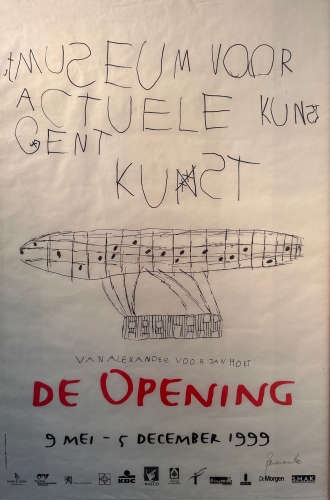 't MUSEUM VOOR
ACTUELE KUNST
GENT
KUNST
VAN ALEXANDER VOOR JAN HOET
DE OPENING
9 MEI - 5 DECEMBER 1999
KBC
DeMorgen
S.M.A.K.